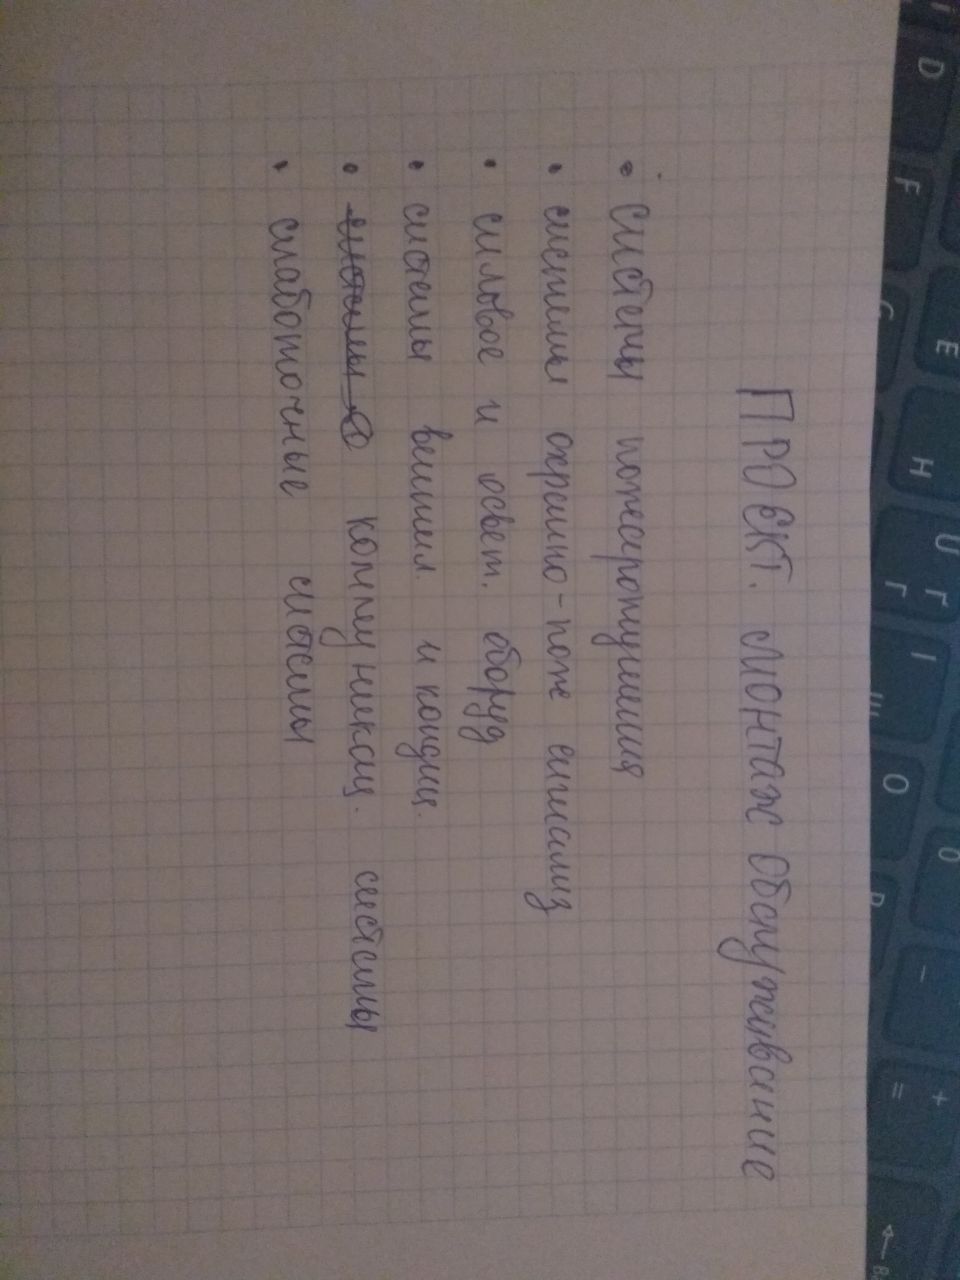 ПРОЕКТ. МОНТАЖ ОБСЛУЖИВАНИЕ
• системы пожаротушения
• системы охранно-пож сигнализ
• силовое и освет. оборуд
• системы вентил. и кондиц.
• коммуникац. системы
• слаботочные системы